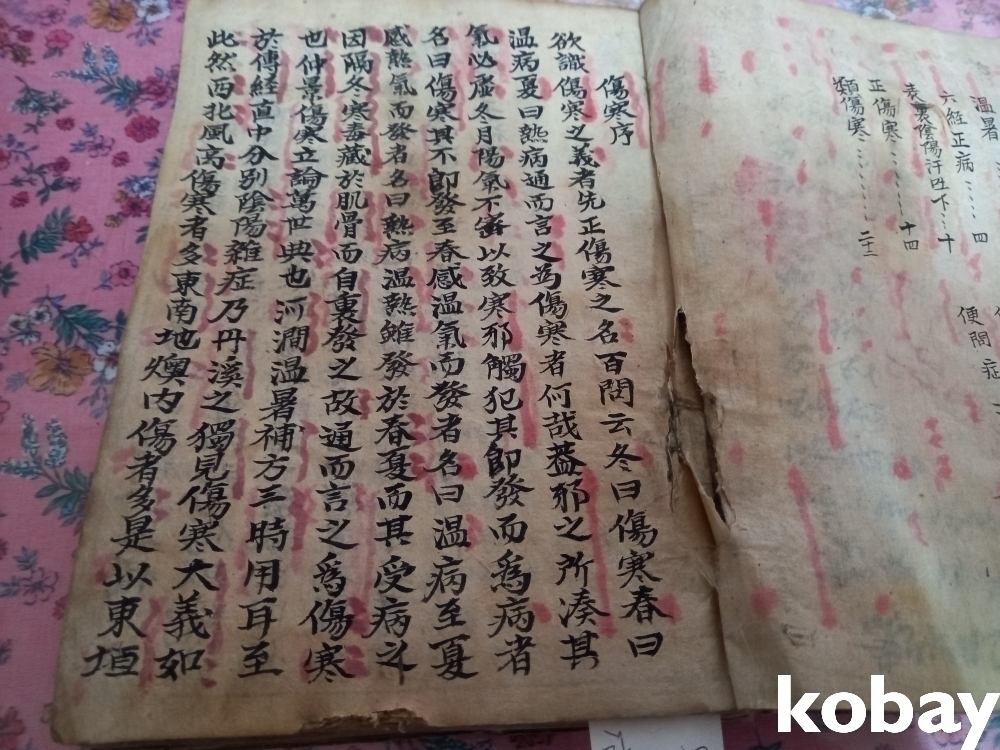 温暑
六經正病....四
表裏陰陽汗吐下..十
正傷寒......十四
類傷寒.......二十三
便問症
傷寒序
欲識傷寒之義者先正傷寒之名百問云冬曰傷寒春曰
温病夏曰熱病通而言之爲傷寒者何哉蓋邪之所湊其
氣必虛冬月陽氣不密以致寒邪觸犯其即發而爲病者
名曰傷寒其不即發至春感温氣而發者名曰温病至夏
感熱氣而發者名曰熱病温熱雖發於春夏而其受病之
因隔冬寒毒藏於肌骨而自裏發之故通而言之爲傷寒
也仲景傷寒立論萬世典也河澗温暑補方三時用耳至
於傳經直中分別陰陽雜症乃丹溪之獨見傷寒大義如
此然西北風高傷寒者多東南地燠內傷者多是以東垣
kobay